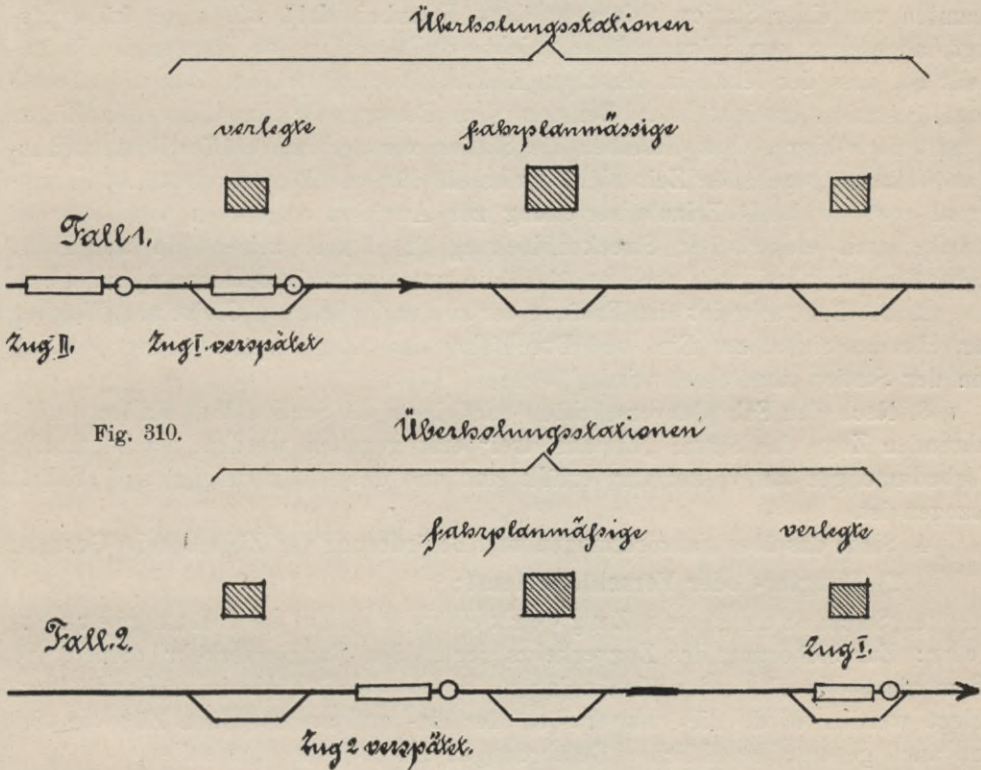 Überholungsstationen
verlegte fahrplanmässige
Fall 1.
Zug II. Zug I. verspätet
Fig. 310.
Überholungsstationen
fahrplanmäßige verlegte
Fall. 2.
Zug I.
Zug 2 verspätet.